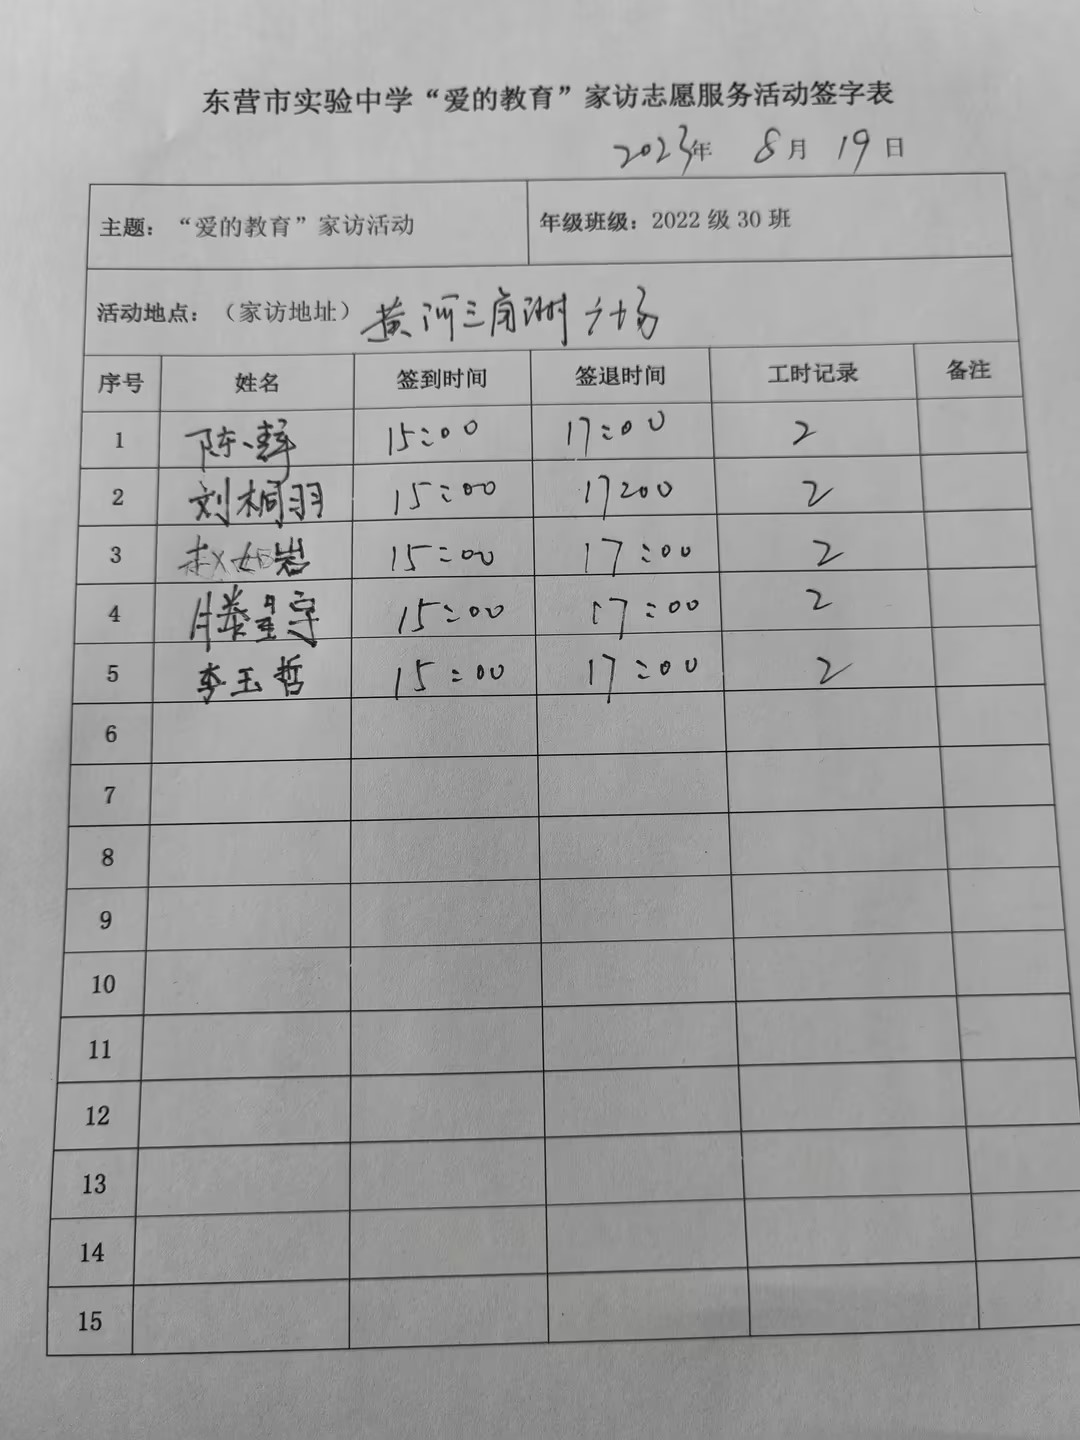 东营市实验中学“爱的教育”家访志愿服务活动签字表
2023年 8月 19日
主题：“爱的教育”家访活动 年级班级：2022级30班
活动地点：（家访地址）黄河三角洲广场
序号 姓名 签到时间 签退时间 工时记录 备注
1 陈 15:00 17:00 2
2 刘桐羽 15:00 17:00 2
3 赵如岩 15:00 17:00 2
4 滕星宇 15:00 17:00 2
5 李玉哲 15:00 17:00 2
6
7
8
9
10
11
12
13
14
15